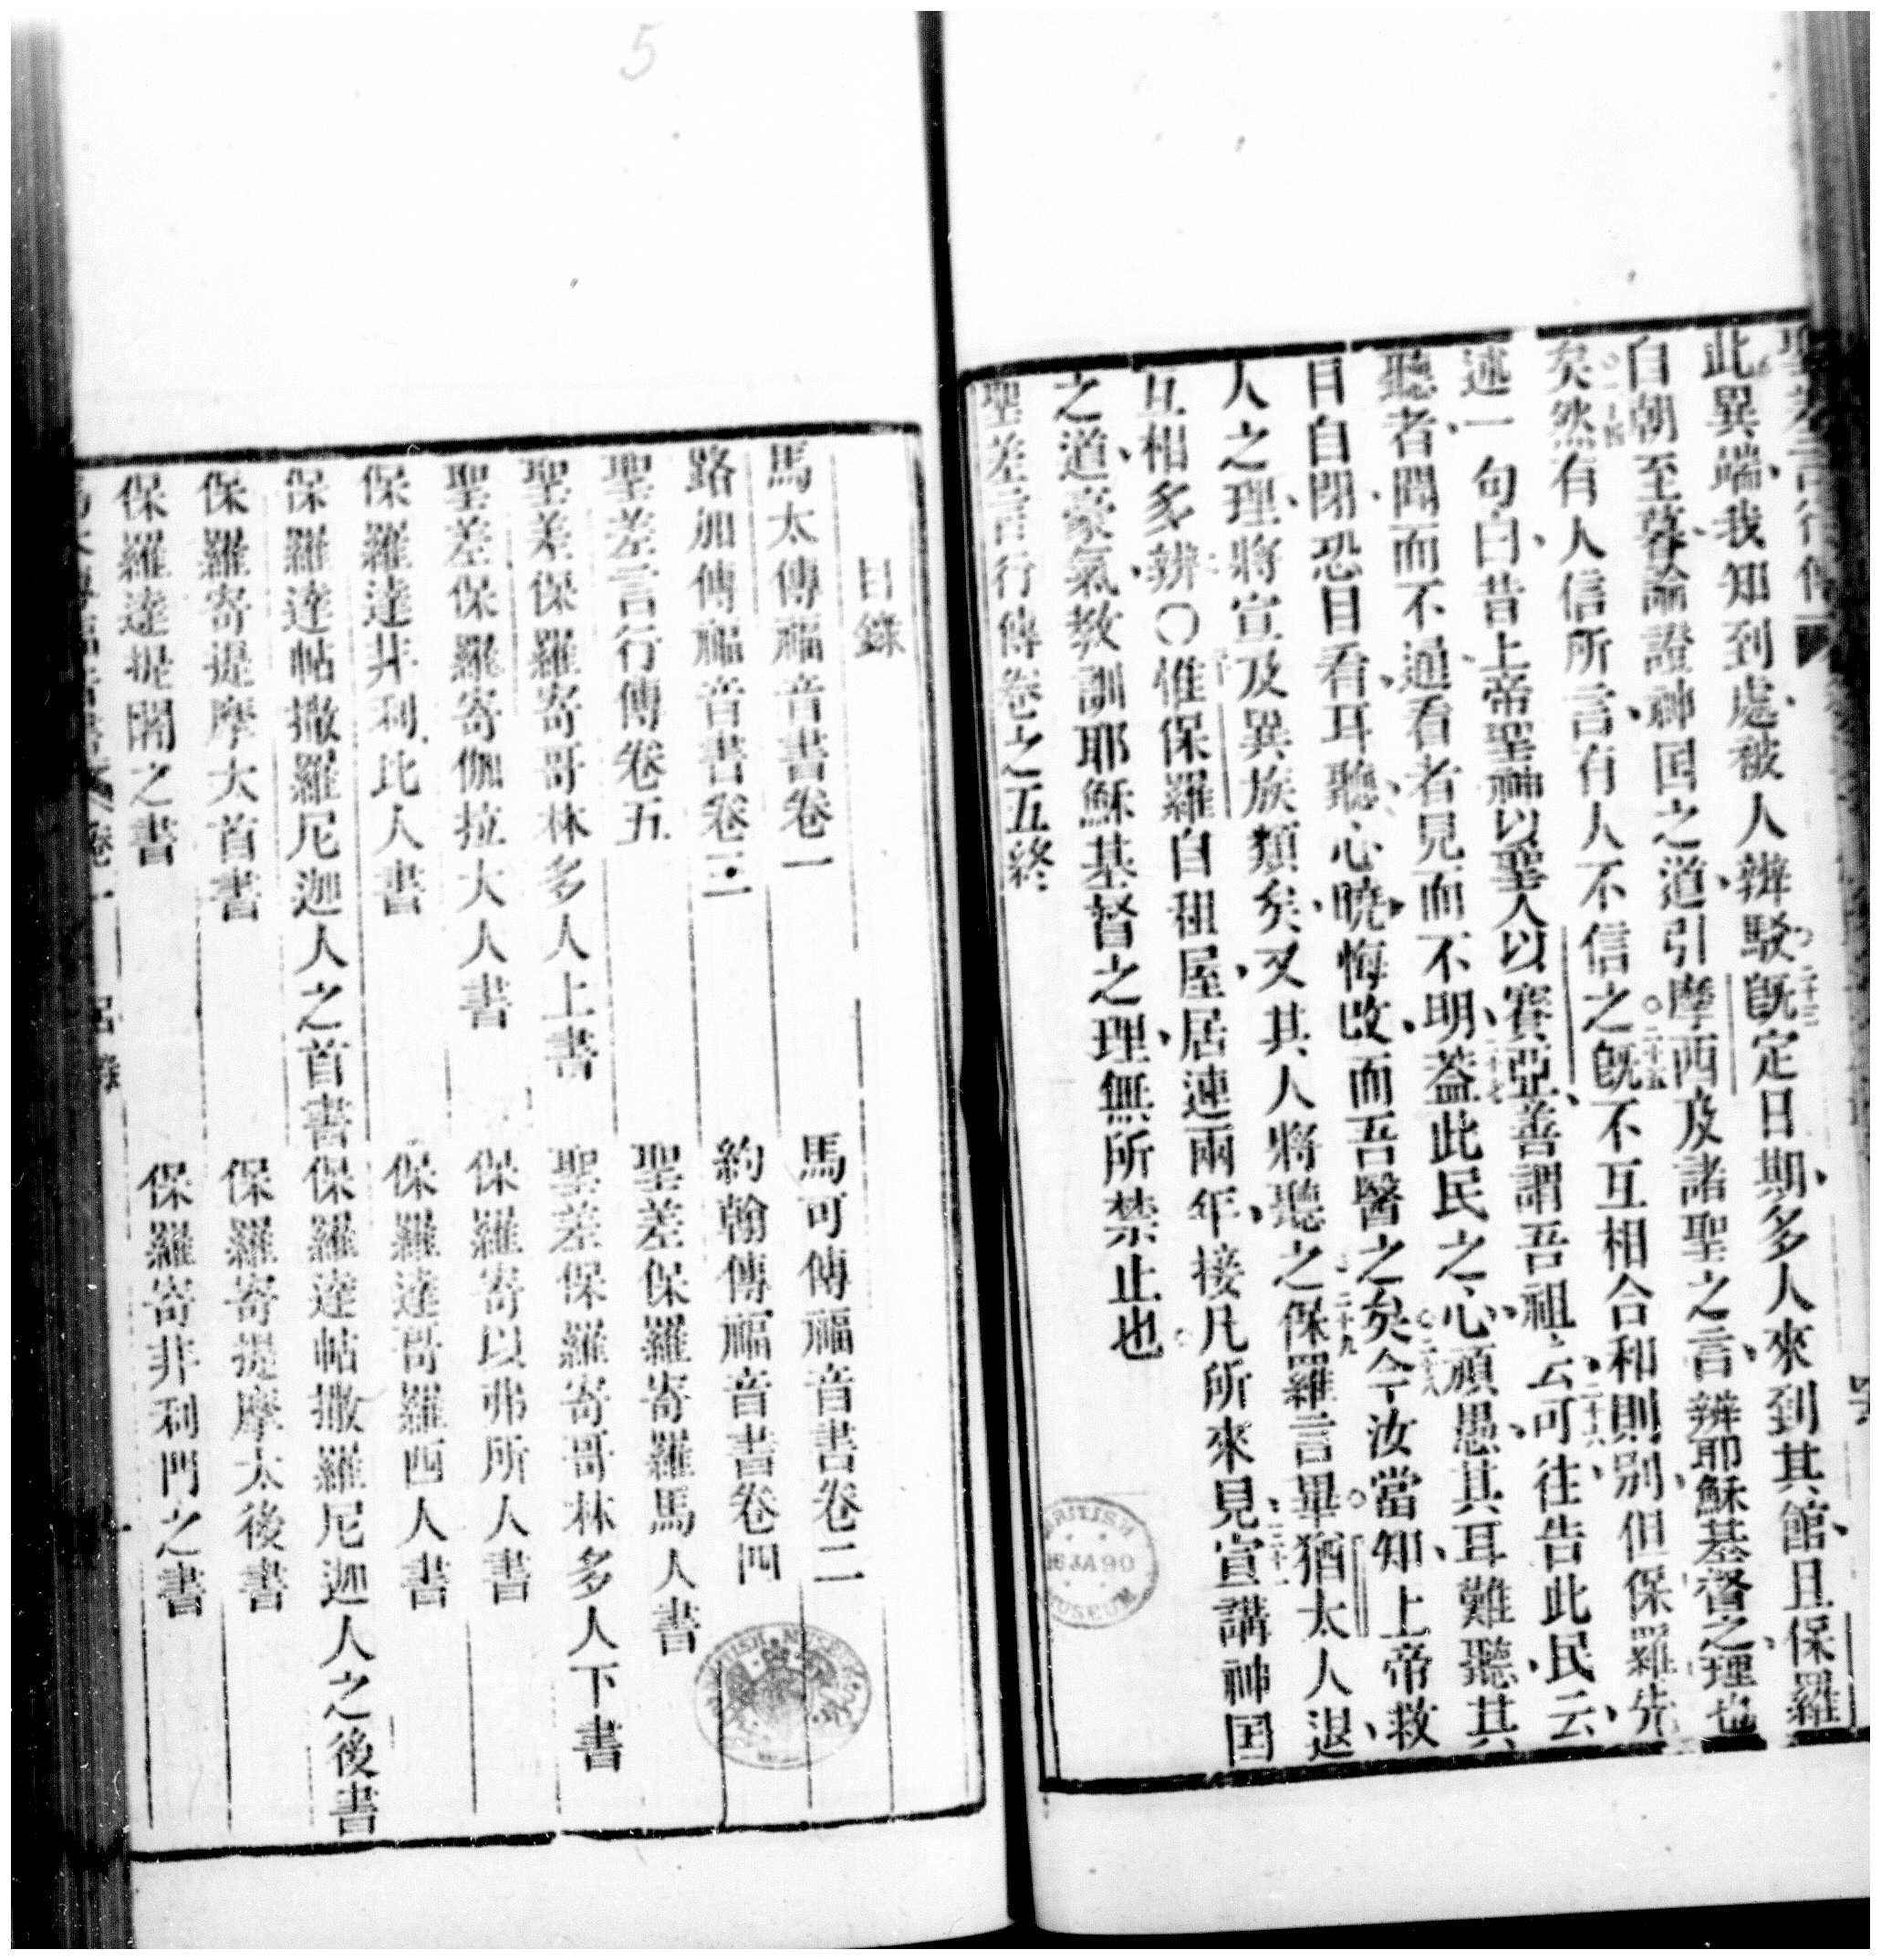 5
此異端我知到處被人辨駁旣定日期多人來到其館且保羅
自朝至暮諭證神国之道引摩西及諸聖之言辨耶穌基督之理也
矣然有人信所言有人不信之旣不互相合和則別但保羅先
述一句白昔上帝聖神以聖人以賽亞善謂吾祖云可往告此民云
聽者聞而不通看者見而不明葢此民之心頑愚其耳難聽其
目自閉恐目看耳聽心曉悔改而吾醫之矣今汝當知上帝救
人之理將宣及異族類矣又其人將聽之保羅言畢猶太人退
互相多辨〇惟保羅自租屋居連兩年接凡所來見宣講神国
之道豪氣教訓耶穌基督之理無所禁止也
聖差言行傳卷之五終
目錄
馬太傳福音書卷一 馬可傳福音書卷二
路加傳福音書卷三 約翰傳福音書卷四
聖差言行傳卷五 聖差保羅寄羅馬人書
聖差保羅寄哥林多人上書 聖差保羅寄哥林多人下書
聖差保羅寄伽拉大人書 保羅寄以弗所人書
保羅達非利比人書 保羅達哥羅西人書
保羅達帖撒羅尼迦人之首書 保羅達帖撒羅尼迦人之後書
保羅寄提摩太首書 保羅寄提摩太後書
保羅達提闍之書 保羅寄非利門之書
BRITISH MUSEUM